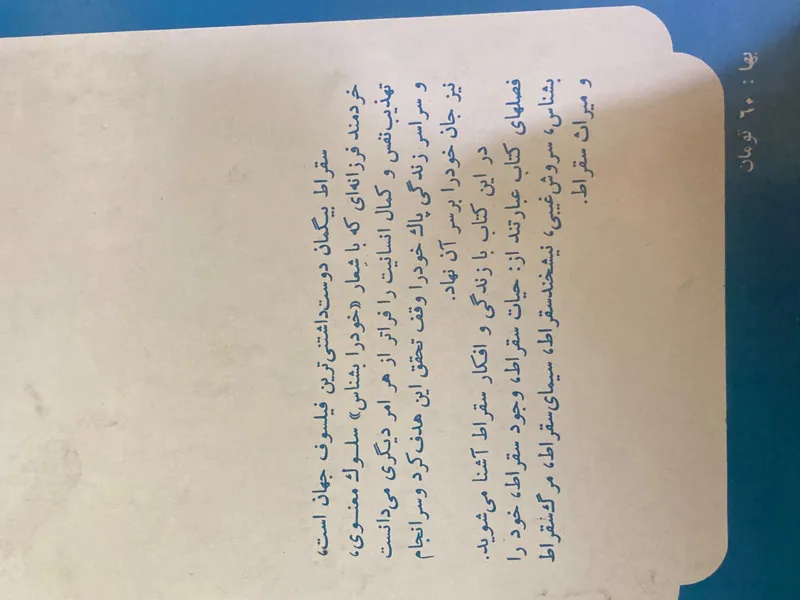 سقراط بیگمان دوست‌داشتنی‌ترین فیلسوف جهان است،
خردمند فرزانه‌ای که با شِعار «خودرا بشناس» سلوك معنوی،
تهذیب‌نفس و کمال انسانیت را فراتر از هر امر دیگری می‌دانست
و سراسر زندگی پاك خودرا وقف تحقق این هدف کرد و سرانجام
نیز جان خودرا برسر آن نهاد.
در این کتاب با زندگی و افکار سقراط آشنا می‌شوید.
فصلهای کتاب عبارتند از: حیات سقراط، وجود سقراط، خود را
بشناس، سروش‌غیبی، نیشخندسقراط، سیمای‌سقراط، مرگ‌سقراط
و میراث سقراط.
بها : ۶۰ تومان